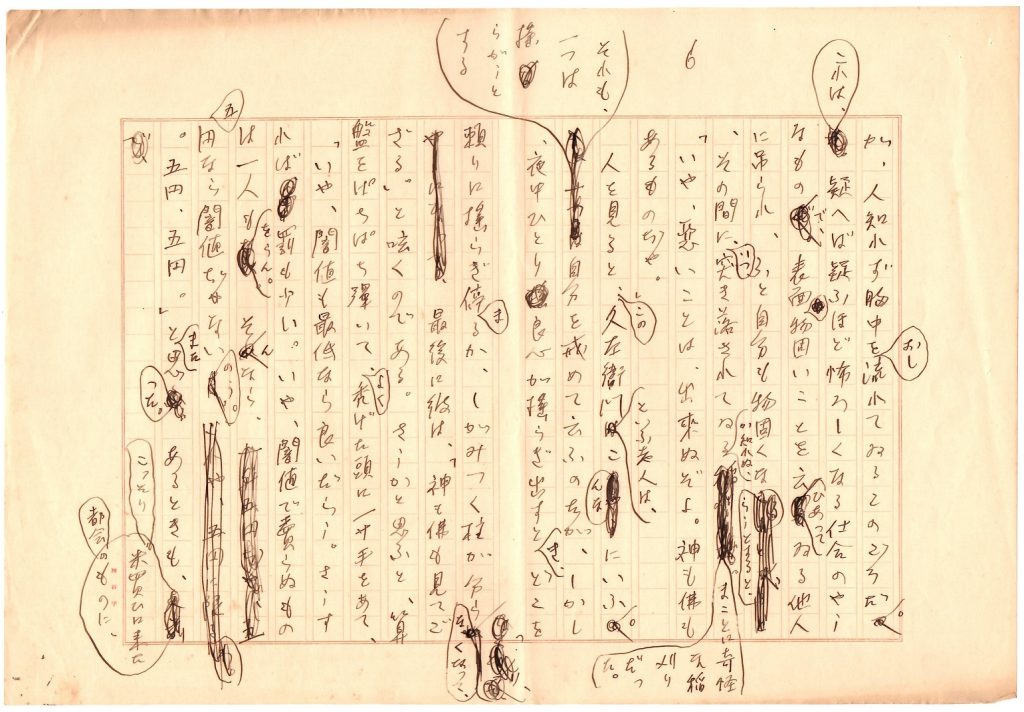 6
が、人知れず胸中をおし流れてゐるこのごろだ。
これは、疑へば疑ふほど怖ろしくなる仕合のやう
なもので、表面物固いことを云ひあつてゐる他人
に吊られ、ふと自分も物固くならうとすると、
、その間に、いつ突き落されてゐるか知れぬ、まことに奇怪な稲刈りだつた。
「いや、悪いことは、出来ぬぞよ。神も佛も
あるものぢや。
人を見ると、この久左衛門といふ老人は、こんなにいふ。
それも、一つは揺らがうとする自分を戒めて云ふのだが、しかし
、夜中ひとり良心が揺らぎ出すとき、とこを
頼りに揺らぎ停まるか、しがみつく柱が分らなくなつて、
、最後に彼は、「神も佛も見てご
ざる。」と呟くのである。さうかと思ふと、算
盤をぱちぱち弾いて、よく禿げた頭に一寸手をあて、
「いや、闇値も最低なら良いだらう。さうす
れば罰も少い。いや、闇値で売らぬもの
は一人もをらん。そんなら、五
円なら闇値ぢやないのう。
。五円、五円。」とまた思つた。あるときも、
こつそり米買ひに来た都会のものに、